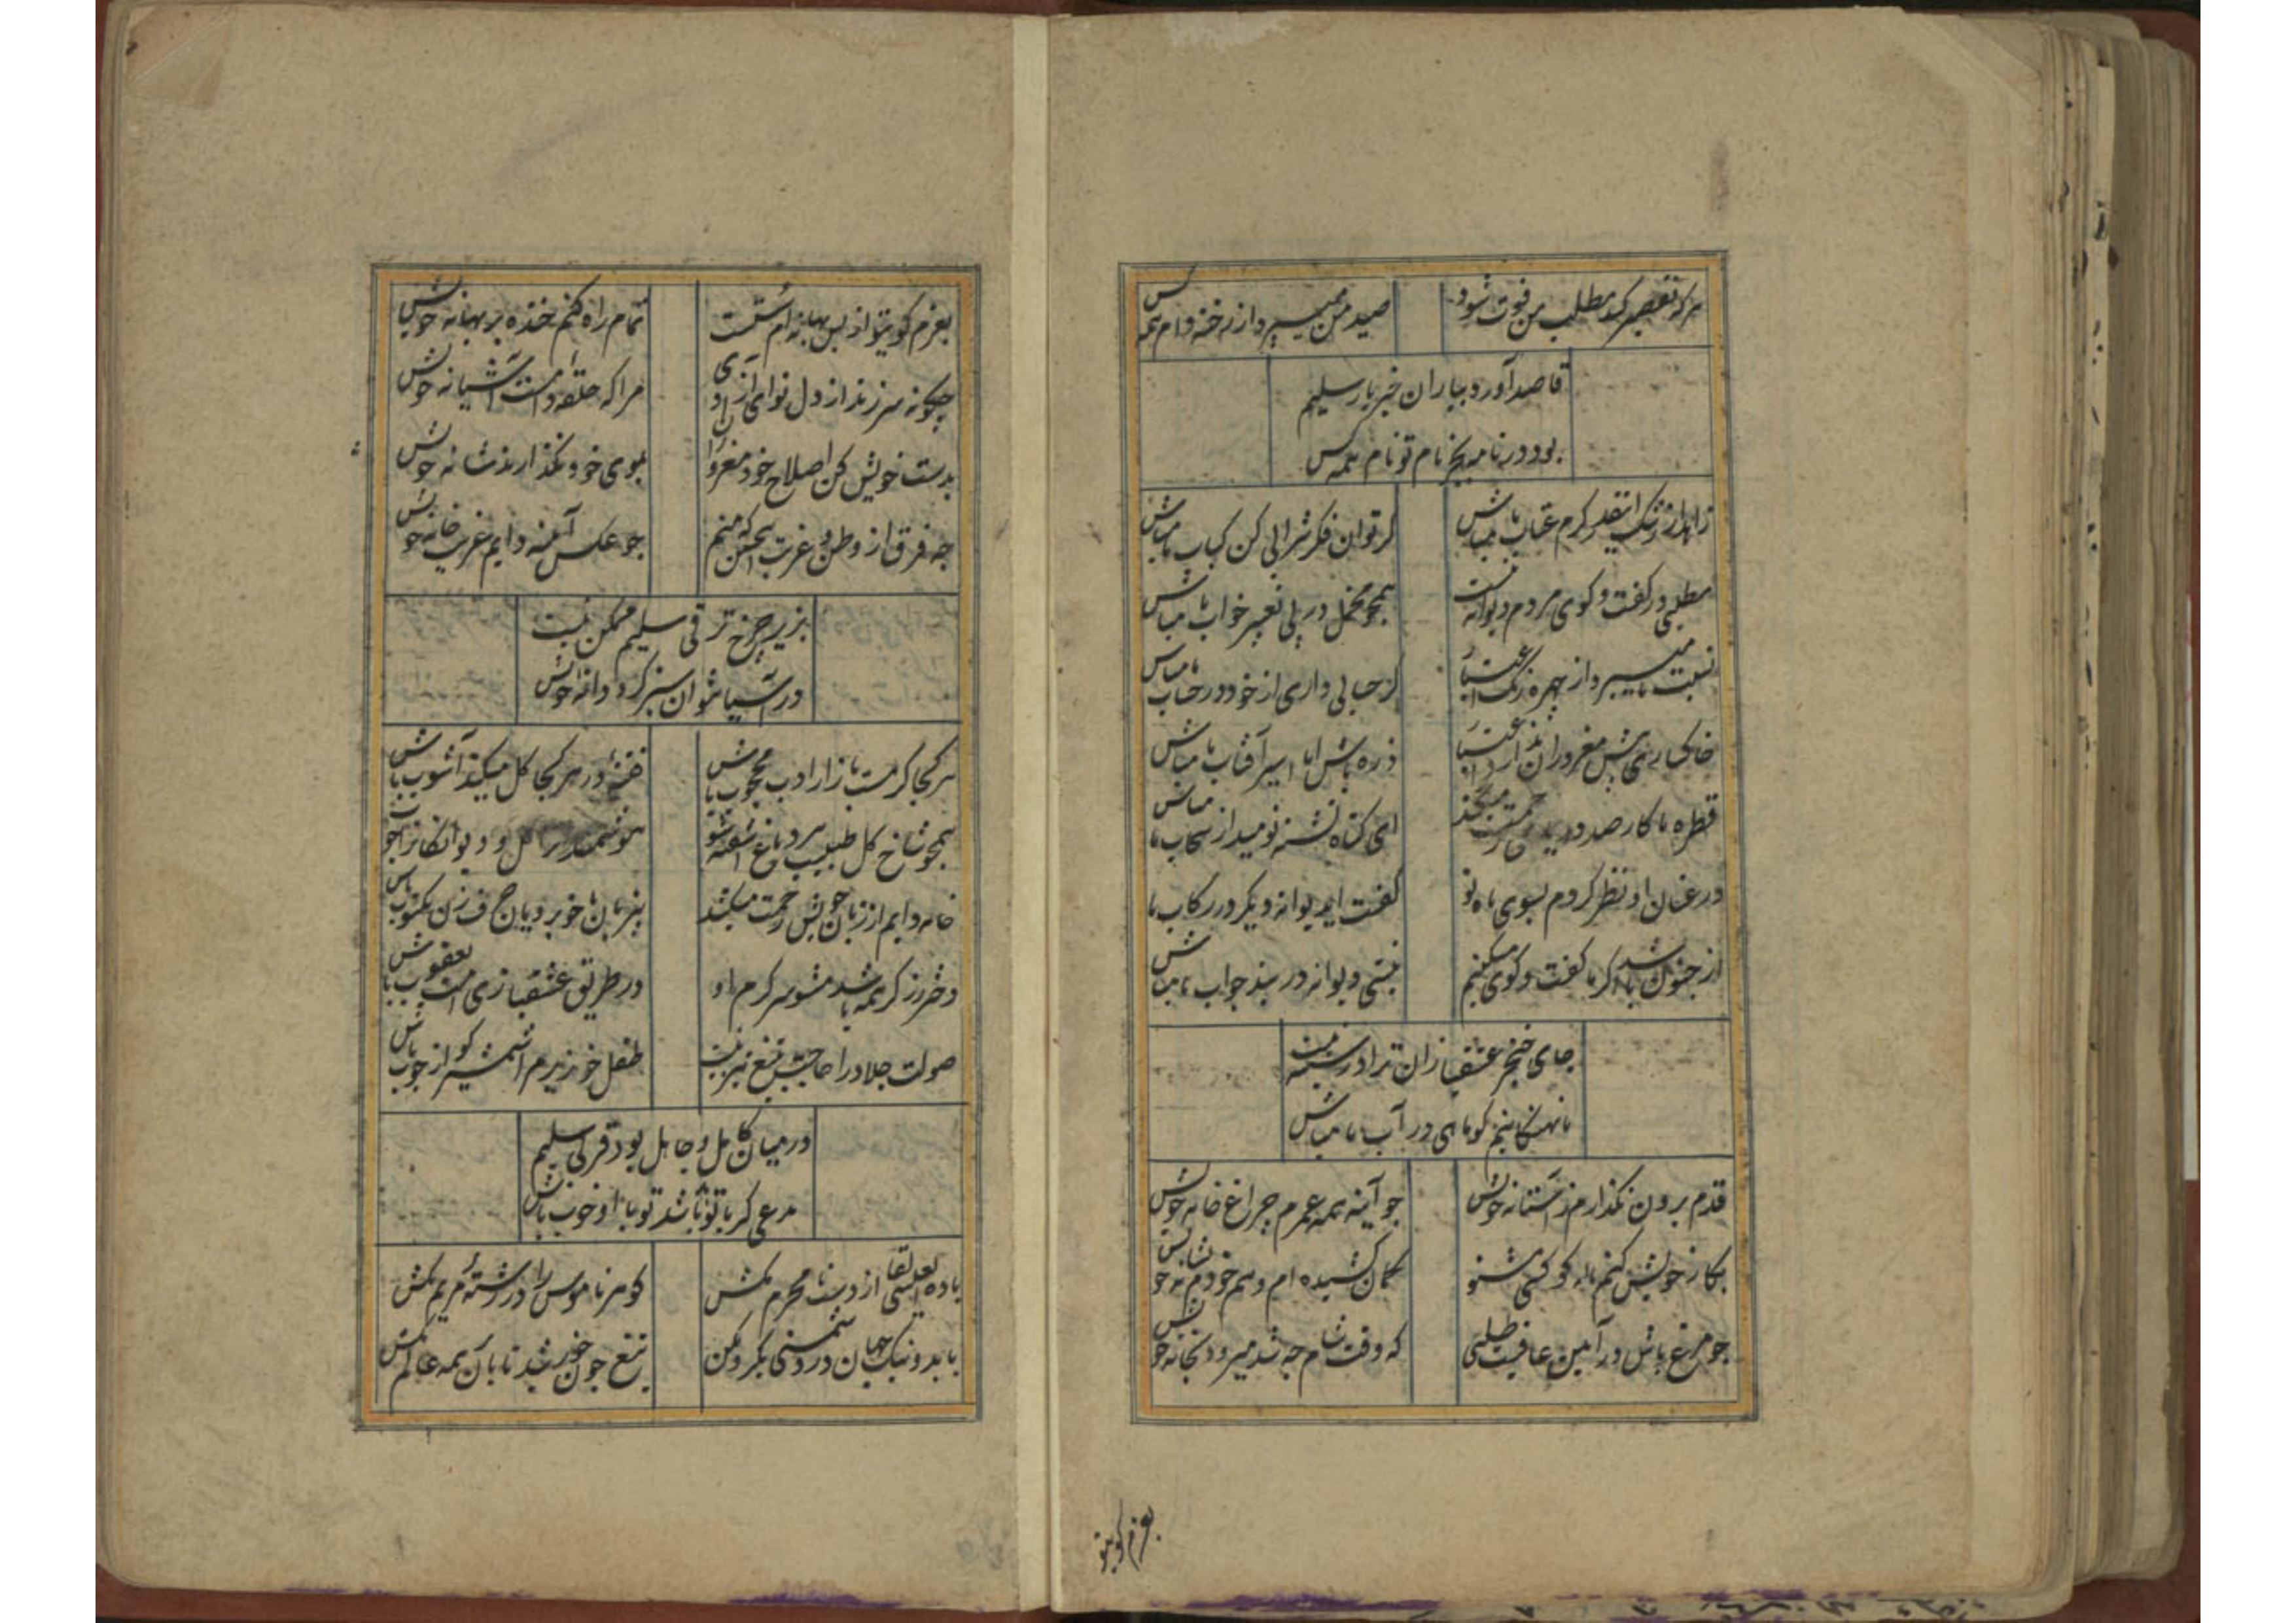 هر که تقصیر کند مطلب من فوت شود
صید من میپرد از رخنه دام همه کس
قاصد آورد بیاران خبر یار سلیم
بود در نامه بجز نام تو نام همه کس
زاهد از رشک اینقدر کرم عتاب ما مباش
کر توان فکر شرابی کن کباب ما مباش
مطلبی در کفت و کوی مردم دیوانه نیست
همچو مخمل در پی تعبیر خواب ما مباش
نسبت ما میبرد از چهره رنک اعتبار
کر حیایی داری از خود در حساب ما مباش
خاکساری پیش مغروران ندارد اعتبار
ذره باش اما اسیر آفتاب ما مباش
قطره ما کار صد دریای رحمت میکند
ای کناه تشنه نومید از سحاب ما مباش
در عنان او نظر کردم بسوی ماه نو
کفت ای دیوانه دیکر در رکاب ما
از جنون باشد اکر ما کفت و کوی میکنیم
نیستی دیوانه در بند جواب ما مباش
جای خنجر عشقبازان ترا در سینه نیست
ما نهنکانیم کو ماهی در آب ما مباش
قدم برون نکذارم ز آستانه خویش
چو آینه همه عمرم چراغ خانه خویش
بکار خویش کنم ناله کو کسی مشنو
کمان کشیده ام و هم خودم نشانه خویش
چو مرغ باش در آیین عافیت طلبی
که وقت شام چه شد میرود بخانه خویش
بعزم کوی تو
بعزم کوی تو از بس بهانه ام سست
تمام راه کنم خنده بر بهانه خویش
چکونه سر زند از دل نوای آزادی
مرا که حلقه دام است آشیانه خویش
بدست خویش کن اصلاح خود مغرور
بموی خود نکذارند شانه خویش
چه فرق از وطن و غربت بیکسی که منم
چو عکس آینه دایم غریب خانه خویش
بزیر چرخ ترقی سلیم ممکن نیست
در آسیا نتوان سبز کرد دانه خویش
هر کجا کرمست بازار ادب محجوب باش
فتنه در هر کجا کل میکند آشوب باش
همچو شاخ کل طبیب هر دماغ آشفته شو
هوشمند کل و دیوانکانرا چوب
خامه دایم از زبان خویش زحمت میکشد
بیزبان با خوبرویان حرف زن مکتوب باش
دختر رز کر همه باشد مشو سرکرم او
در طریق عشقبازی امت یعقوب باش
صولت جلاد را حاجت بتیغ تیز نیست
طفل خونریزم شمشیر کو از چوب باش
در میان کامل و جاهل بود فرقی سلیم
مدعی کر با تو بد باشد تو با او خوب باش
باده لعلی از دست نامحرم مکش
کوهر ناموس را در رشته مریم مکش
با بد و نیک جهان در دوستی یکرو مکن
تیغ چون خورشید تابان همه عالم مکش